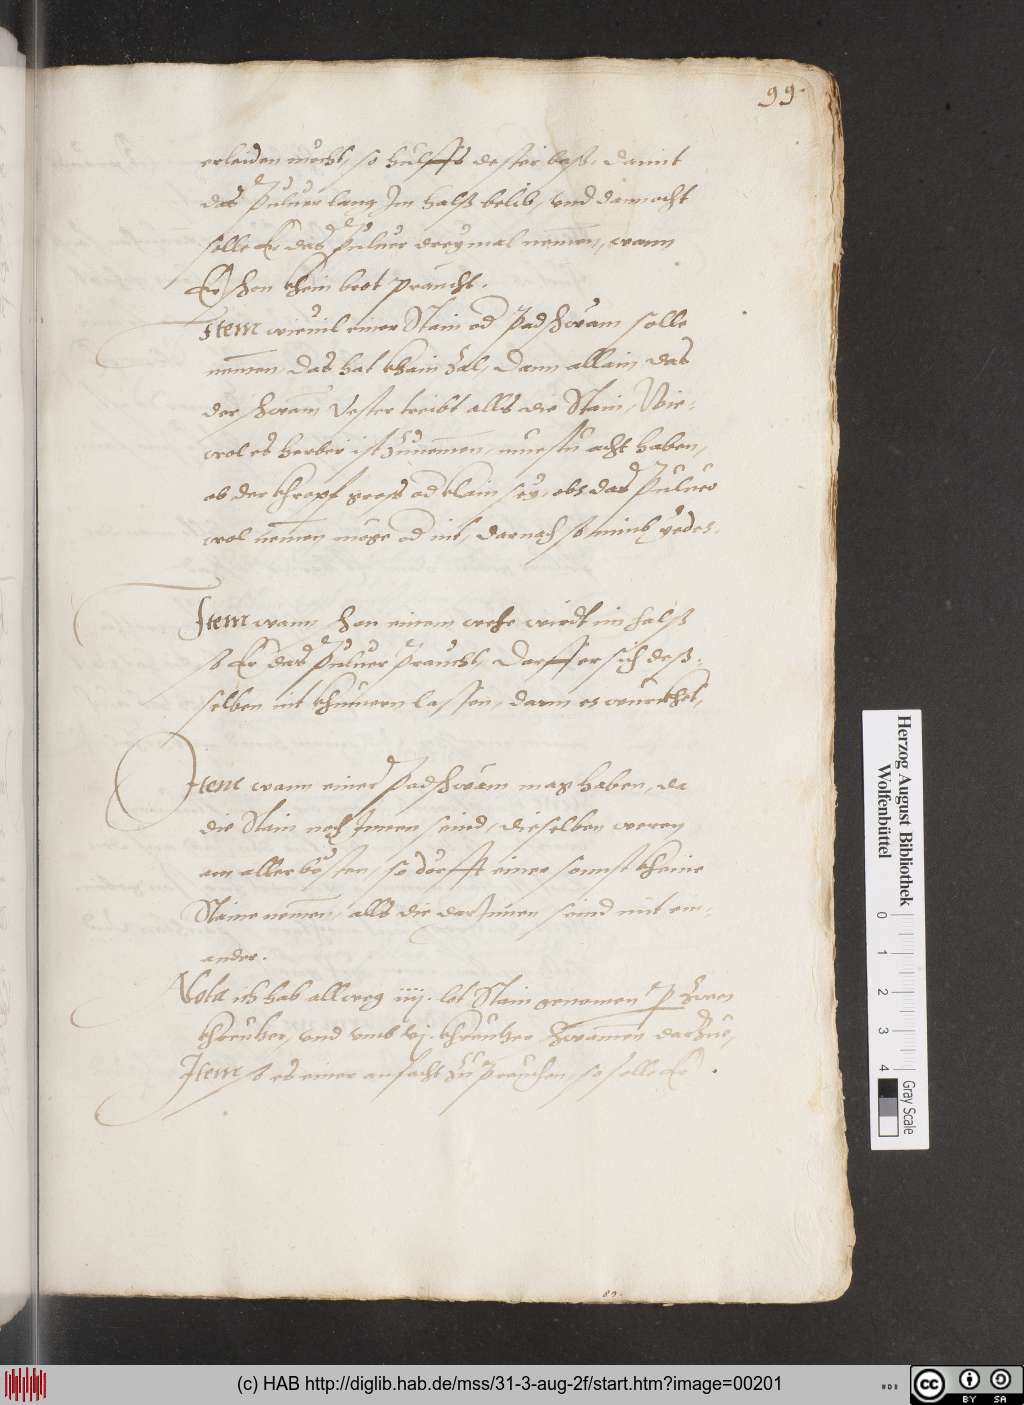 99.
erleiden mecht, so hulffts dester baß, damit
das Puluer lang Im halß belib, vnd dannocht
solle Er das Puluer dreymal nemen, wann
Er schon khein brot praucht.
Item wieuil einer Stain od Padschwam solle
nemen, das hat khain Zal, Dann allain das
der schwam Vester treibt alls die Stain, Wie-
wol es herber ist Zunemen, muestu acht haben,
ob der khropf gross od klain sey, obs das Puluer
wol nemen müge od nit, darnach so nimb yedes.
Item wann schon einem wehe wirdt im halß
so Er das Puluer Praucht, Darff er sich deß-
selben nit khumern lassen, dann es wurckhet,
Item wann einer Padschwam mag haben, da
die Stain noch Innen seind, dieselben weren
am aller bösten, so dörfft einer sonnst kheine
Staine nemen, alls die darInnen seind mit ein-
ander.
Nota ich hab allweg iiij. lot Stain genomen P Zwen
khreutzer, vnd vmb vj. khreutzer Schwamen darZue,
Item so es einer anfacht Zu Prauchen, so solle Er
82.
Herzog August Bibliothek
Wolfenbüttel
0 1 2 3 4
Gray Scale
(c) HAB http://diglib.hab.de/mss/31-3-aug-2f/start.htm?image=00201
cc BY SA